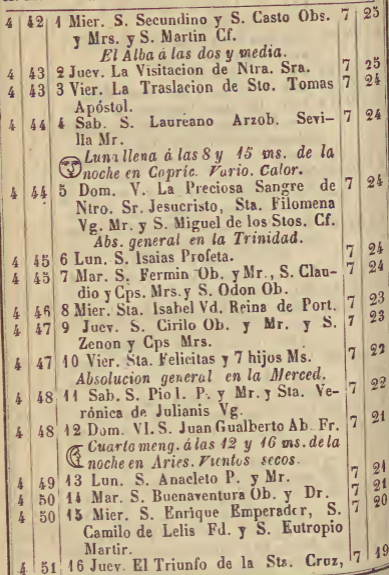 4 42 1 Mier. S. Secundino y S. Casto Obs. 7 25
y Mrs. y S. Martin Cf.
El Alba á las dos y media.
4 43 2 Juev. La Visitacion de Ntra. Sra. 7 25
4 43 3 Vier. La Traslacion de Sto. Tomas 7 24
Apóstol.
4 44 4 Sab. S. Laureano Arzob. Sevi- 7 24
lla Mr.
Luna llena á las 8 y 15 ms. de la
noche en Copric. Vario. Calor.
4 44 5 Dom. V. La Preciosa Sangre de 7 24
Ntro. Sr. Jesucristo, Sta. Filomena
Vg. Mr. y S. Miguel de los Stos. Cf.
Abs. general en la Trinidad.
4 45 6 Lun. S. Isaias Profeta. 7 24
4 45 7 Mar. S. Fermin Ob. y Mr., S. Clau- 7 24
dio y Cps. Mrs. y S. Odon Ob.
4 46 8 Mier. Sta. Isabel Vd. Reina de Port. 7 23
4 47 9 Juev. S. Cirilo Ob. y Mr. y S. 7 23
Zenon y Cps Mrs.
4 47 10 Vier. Sta. Felicitas y 7 hijos Ms. 7 22
Absolucion general en la Merced.
4 48 11 Sab. S. Pio I. P. y Mr. y Sta. Ve- 7 22
rónica de Julianis Vg.
4 48 12 Dom. VI. S. Juan Gualberto Ab. Fr. 7 21
Cuarto meng. á las 12 y 16 ms. de la
noche en Aries. Vientos secos.
4 49 13 Lun. S. Anacleto P. y Mr. 7 21
4 50 14 Mar. S. Buenaventura Ob. y Dr. 7 21
4 50 15 Mier. S. Enrique Emperador, S. 7 20
Camilo de Lelis Fd. y S. Eutropio
Martir.
4 51 16 Juev. El Triunfo de la Sta. Cruz, 7 19